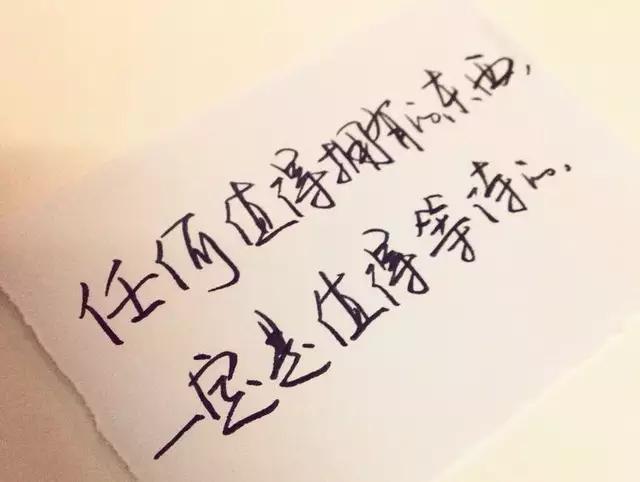 任何值得拥有的东西,
一定是值得等待的,